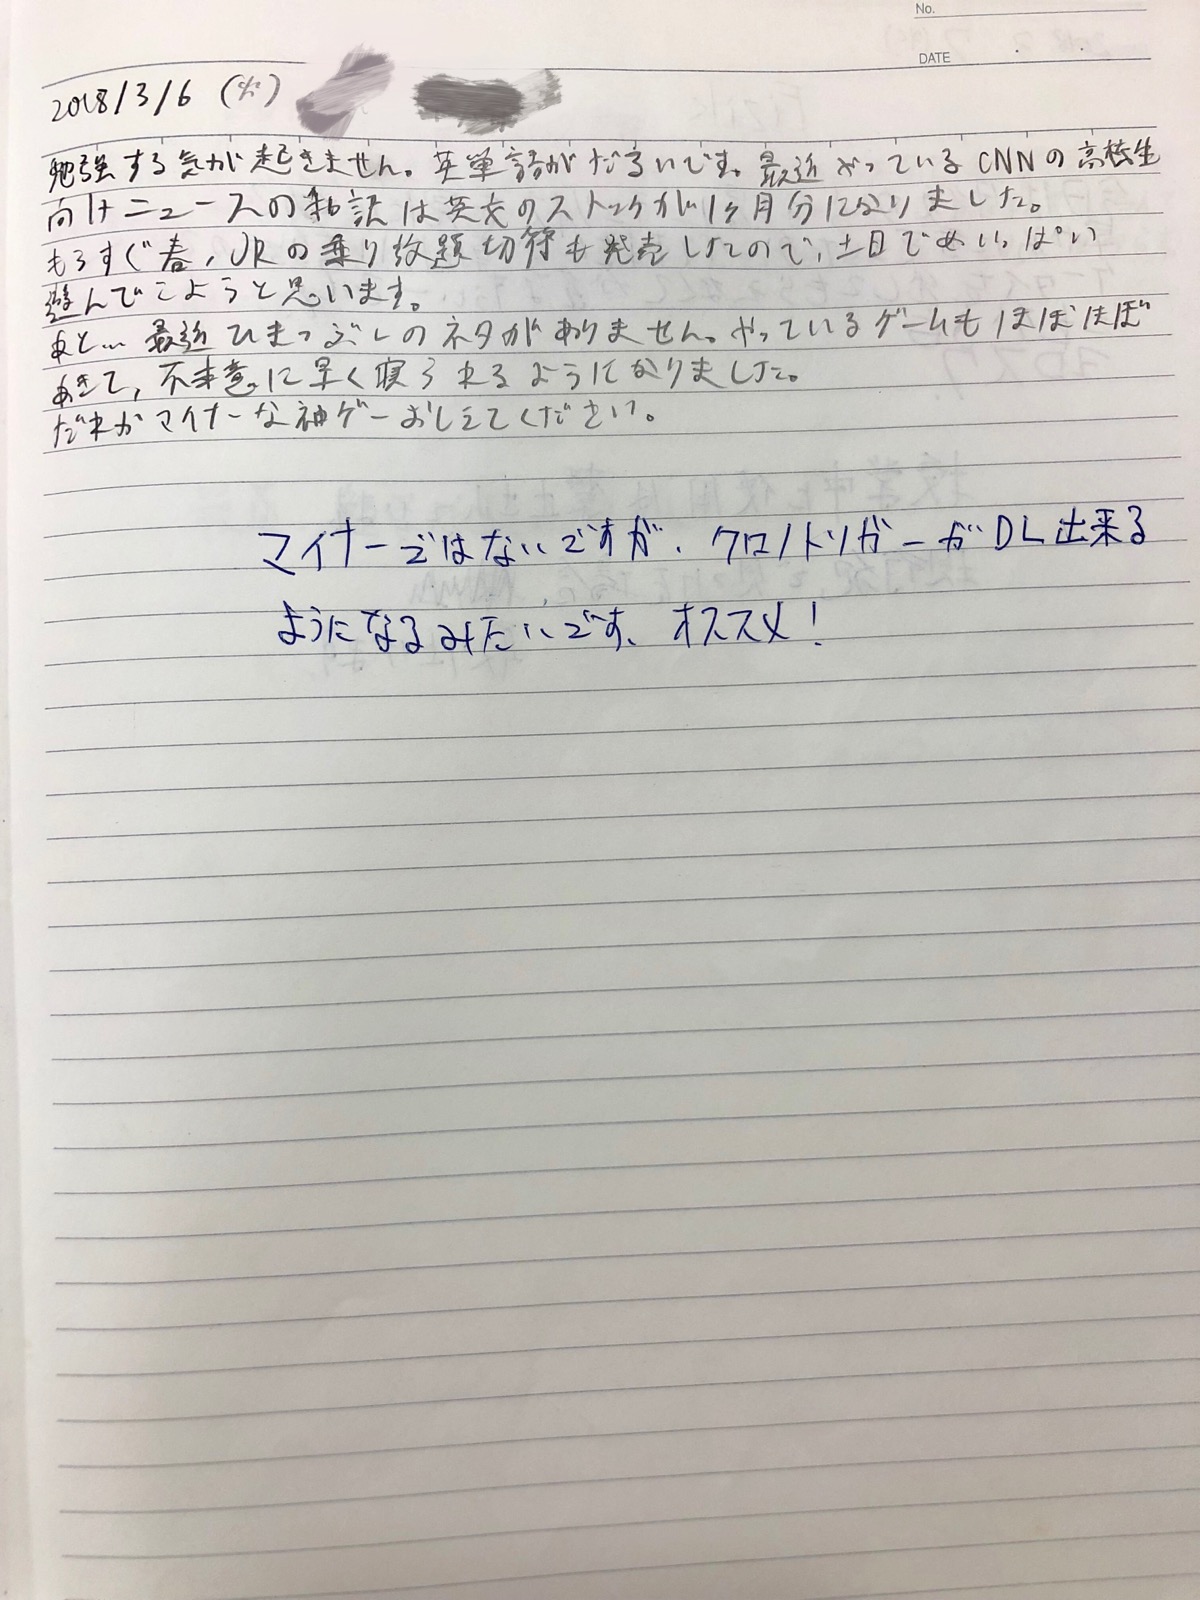 No.
DATE
2018/3/6 (火)
勉強する気が起きません。英単語がだるいです。最近やっているCNNの高校生
向けニュースの和訳は英文のストックが1ヶ月分になりました。
もうすぐ春、JRの乗り放題切符も発売したので、土日でめいっぱい
遊んでこようと思います。
あと… 最近ひまつぶしのネタがありません。やっているゲームもほぼほぼ
あきて、不本意に早く寝られるようになりました。
だれかマイナーな神ゲーおしえてください。
マイナーではないですが、クロノトリガーがDL出来る
ようになるみたいです、オススメ!